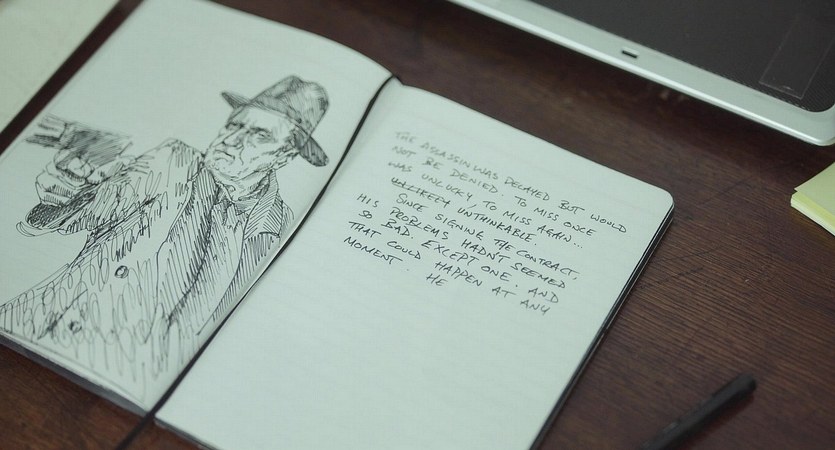 THE ASSASSIN WAS DELAYED BUT WOULD
NOT BE DENIED. TO MISS ONCE
WAS UNLUCKY TO MISS AGAIN...
UNTHINKABLE.
SINCE SIGNING THE CONTRACT,
HIS PROBLEMS HADN'T SEEMED
SO BAD. EXCEPT ONE. AND
THAT COULD HAPPEN AT ANY
MOMENT. HE